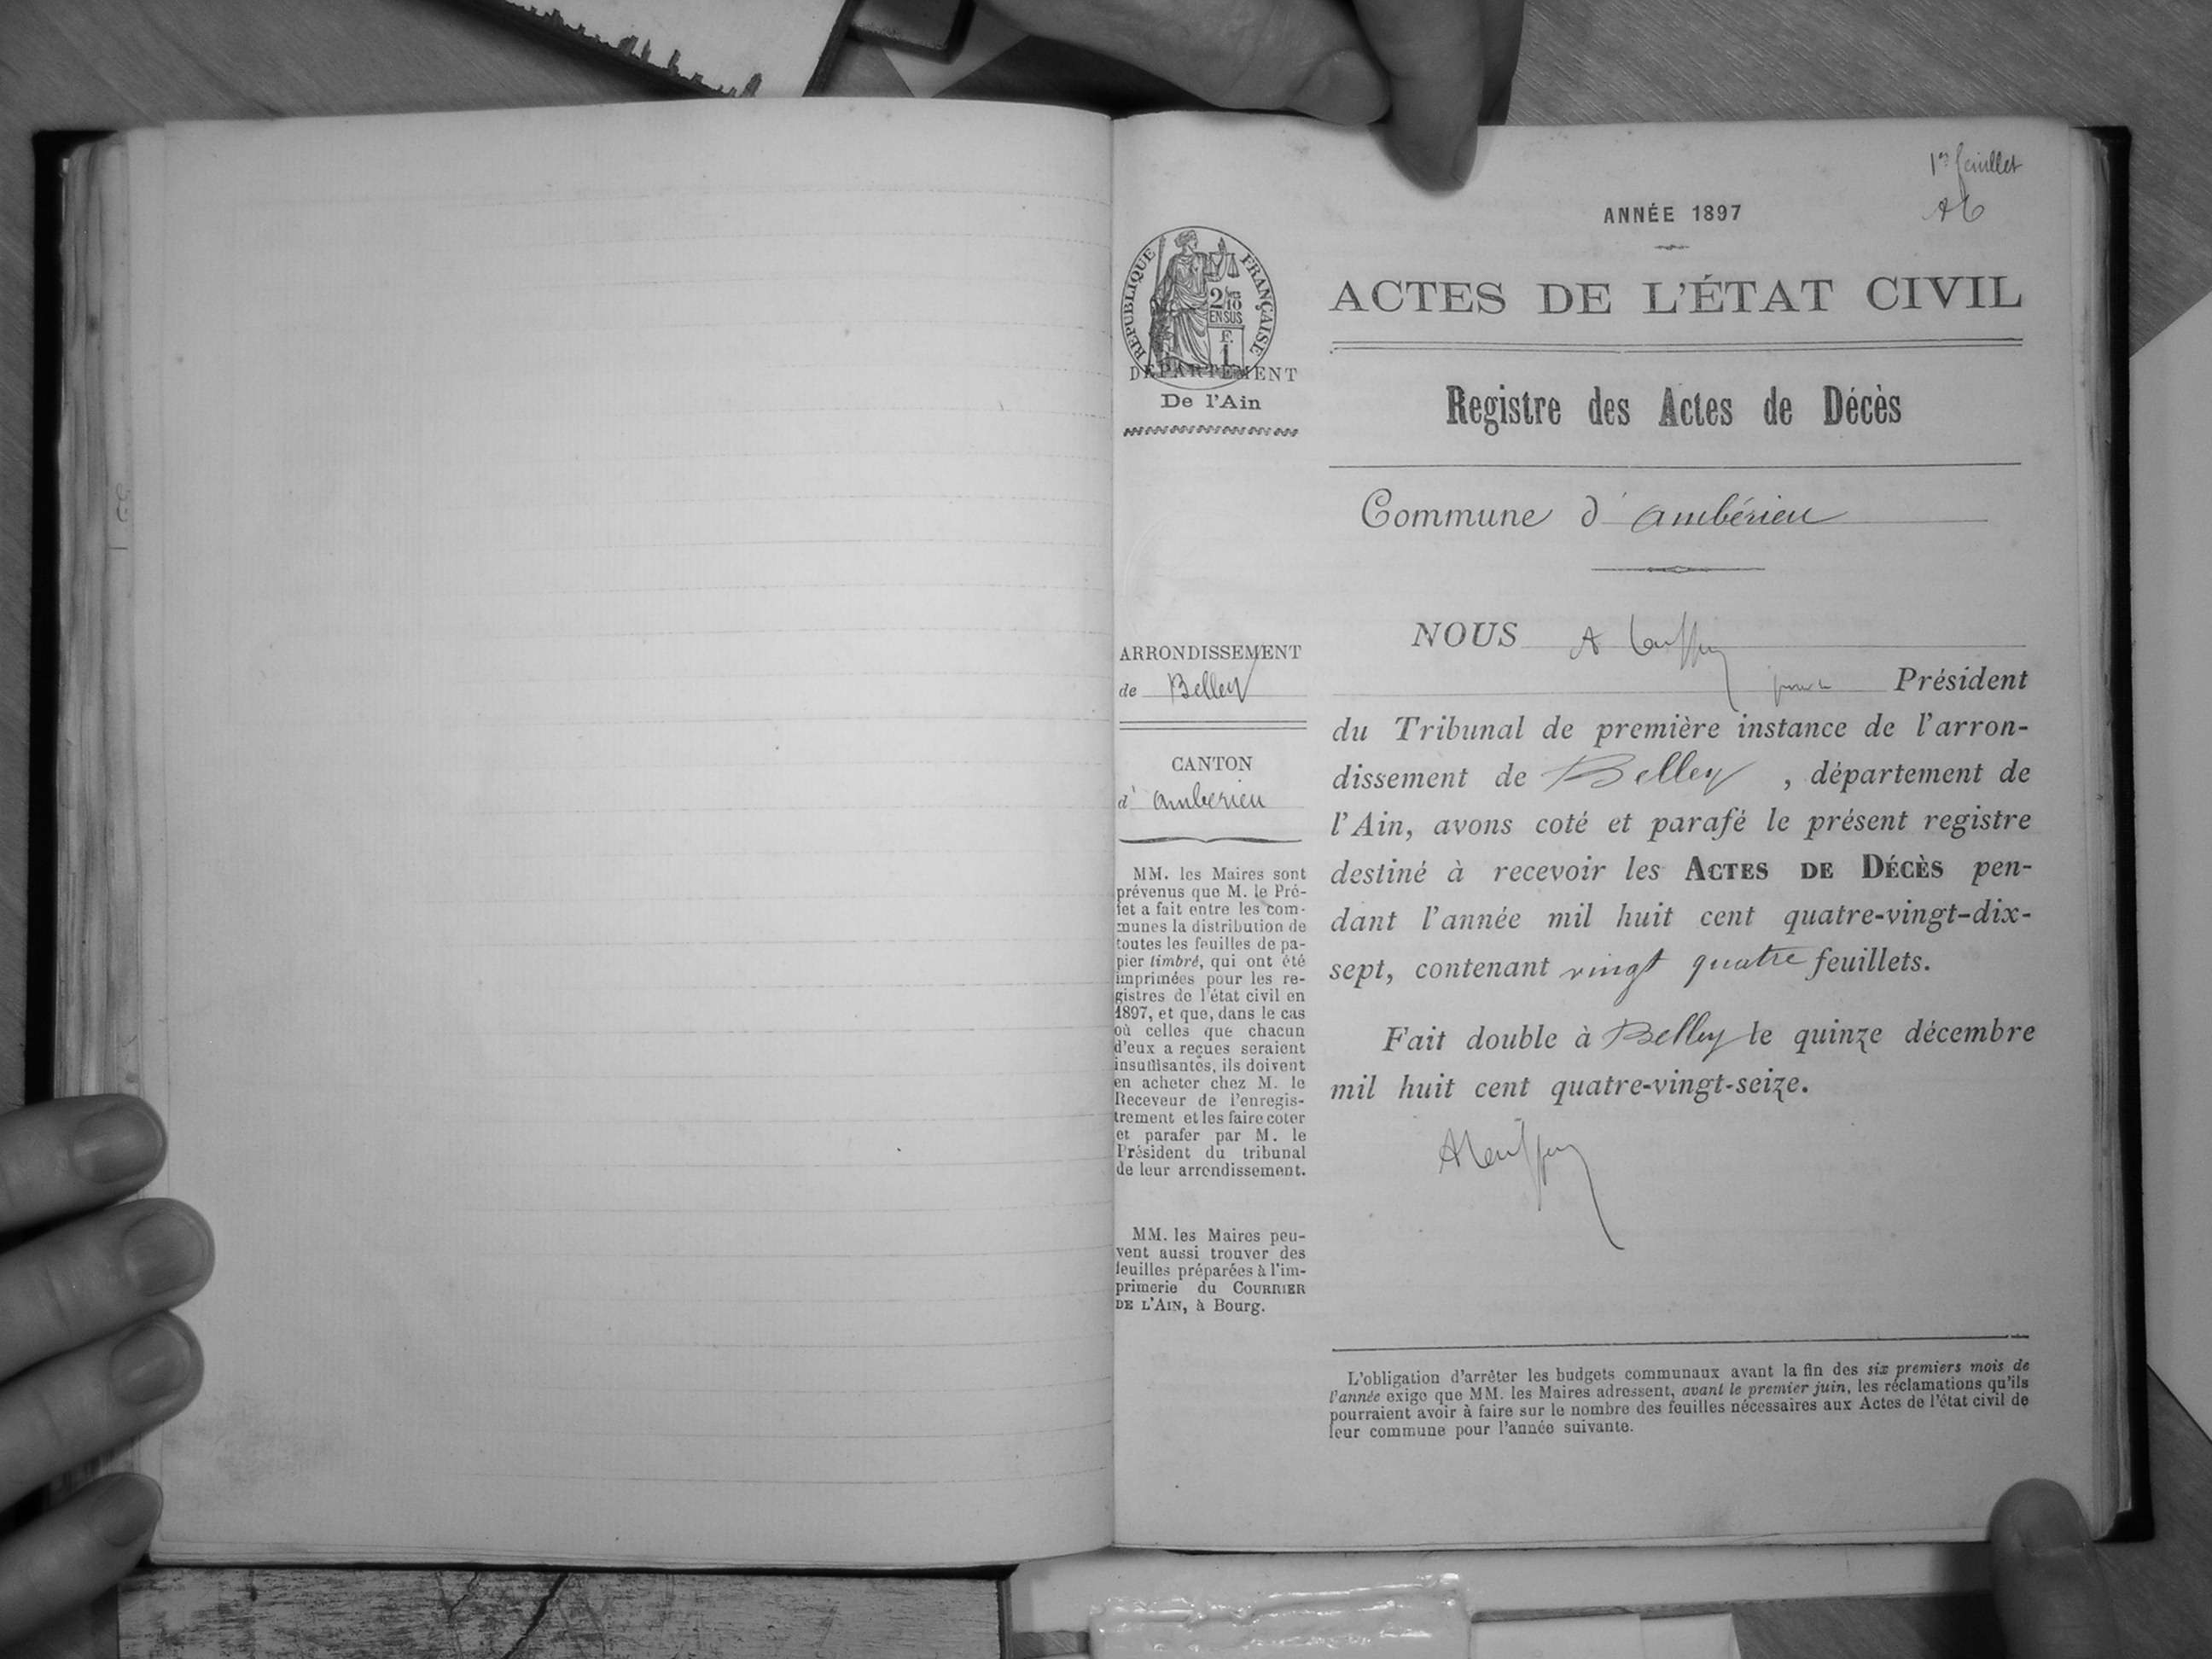 1er feuillet
ANNÉE 1897
ACTES DE L'ÉTAT CIVIL
RÉPUBLIQUE FRANÇAISE
2/10
EN SUS
F.
1
DÉPARTEMENT
De l'Ain
Registre des Actes de Décès
Commune d'ambérieu
ARRONDISSEMENT
de Belley
CANTON
d'ambérieu
MM. les Maires sont
prévenus que M. le Pré-
fet a fait entre les com-
munes la distribution de
toutes les feuilles de pa-
pier timbré, qui ont été
imprimées pour les re-
gistres de l'état civil en
1897, et que, dans le cas
où celles que chacun
d'eux a reçues seraient
insuffisantes, ils doivent
en acheter chez M. le
Receveur de l'enregis-
trement et les faire coter
et parafer par M. le
Président du tribunal
de leur arrondissement.
MM. les Maires peu-
vent aussi trouver des
feuilles préparées à l'im-
primerie du COURRIER
DE L'AIN, à Bourg.
NOUS A
Président
du Tribunal de première instance de l'arron-
dissement de Belley, département de
l'Ain, avons coté et parafé le présent registre
destiné à recevoir les ACTES DE DÉCÈS pen-
dant l'année mil huit cent quatre-vingt-dix-
sept, contenant vingt quatre feuillets.
Fait double à Belley le quinze décembre
mil huit cent quatre-vingt-seize.
L'obligation d'arrêter les budgets communaux avant la fin des six premiers mois de
l'année exige que MM. les Maires adressent, avant le premier juin, les réclamations qu'ils
pourraient avoir à faire sur le nombre des feuilles nécessaires aux Actes de l'état civil de
leur commune pour l'année suivante.